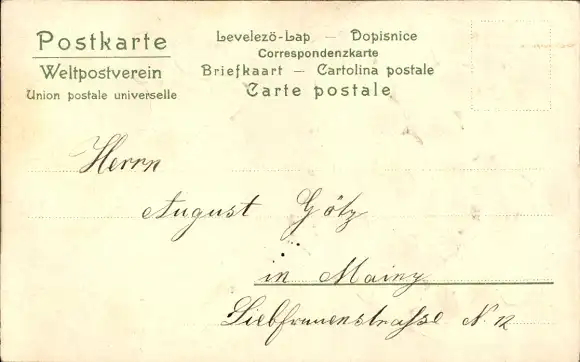 Postkarte
Weltpostverein
Union postale universelle
Levelezö-Lap — Dopisnice
Correspondenzkarte
Briefkaart — Cartolina postale
Carte postale
Herrn
August Götz
in Mainz
Liebfrauenstrasse N. 12